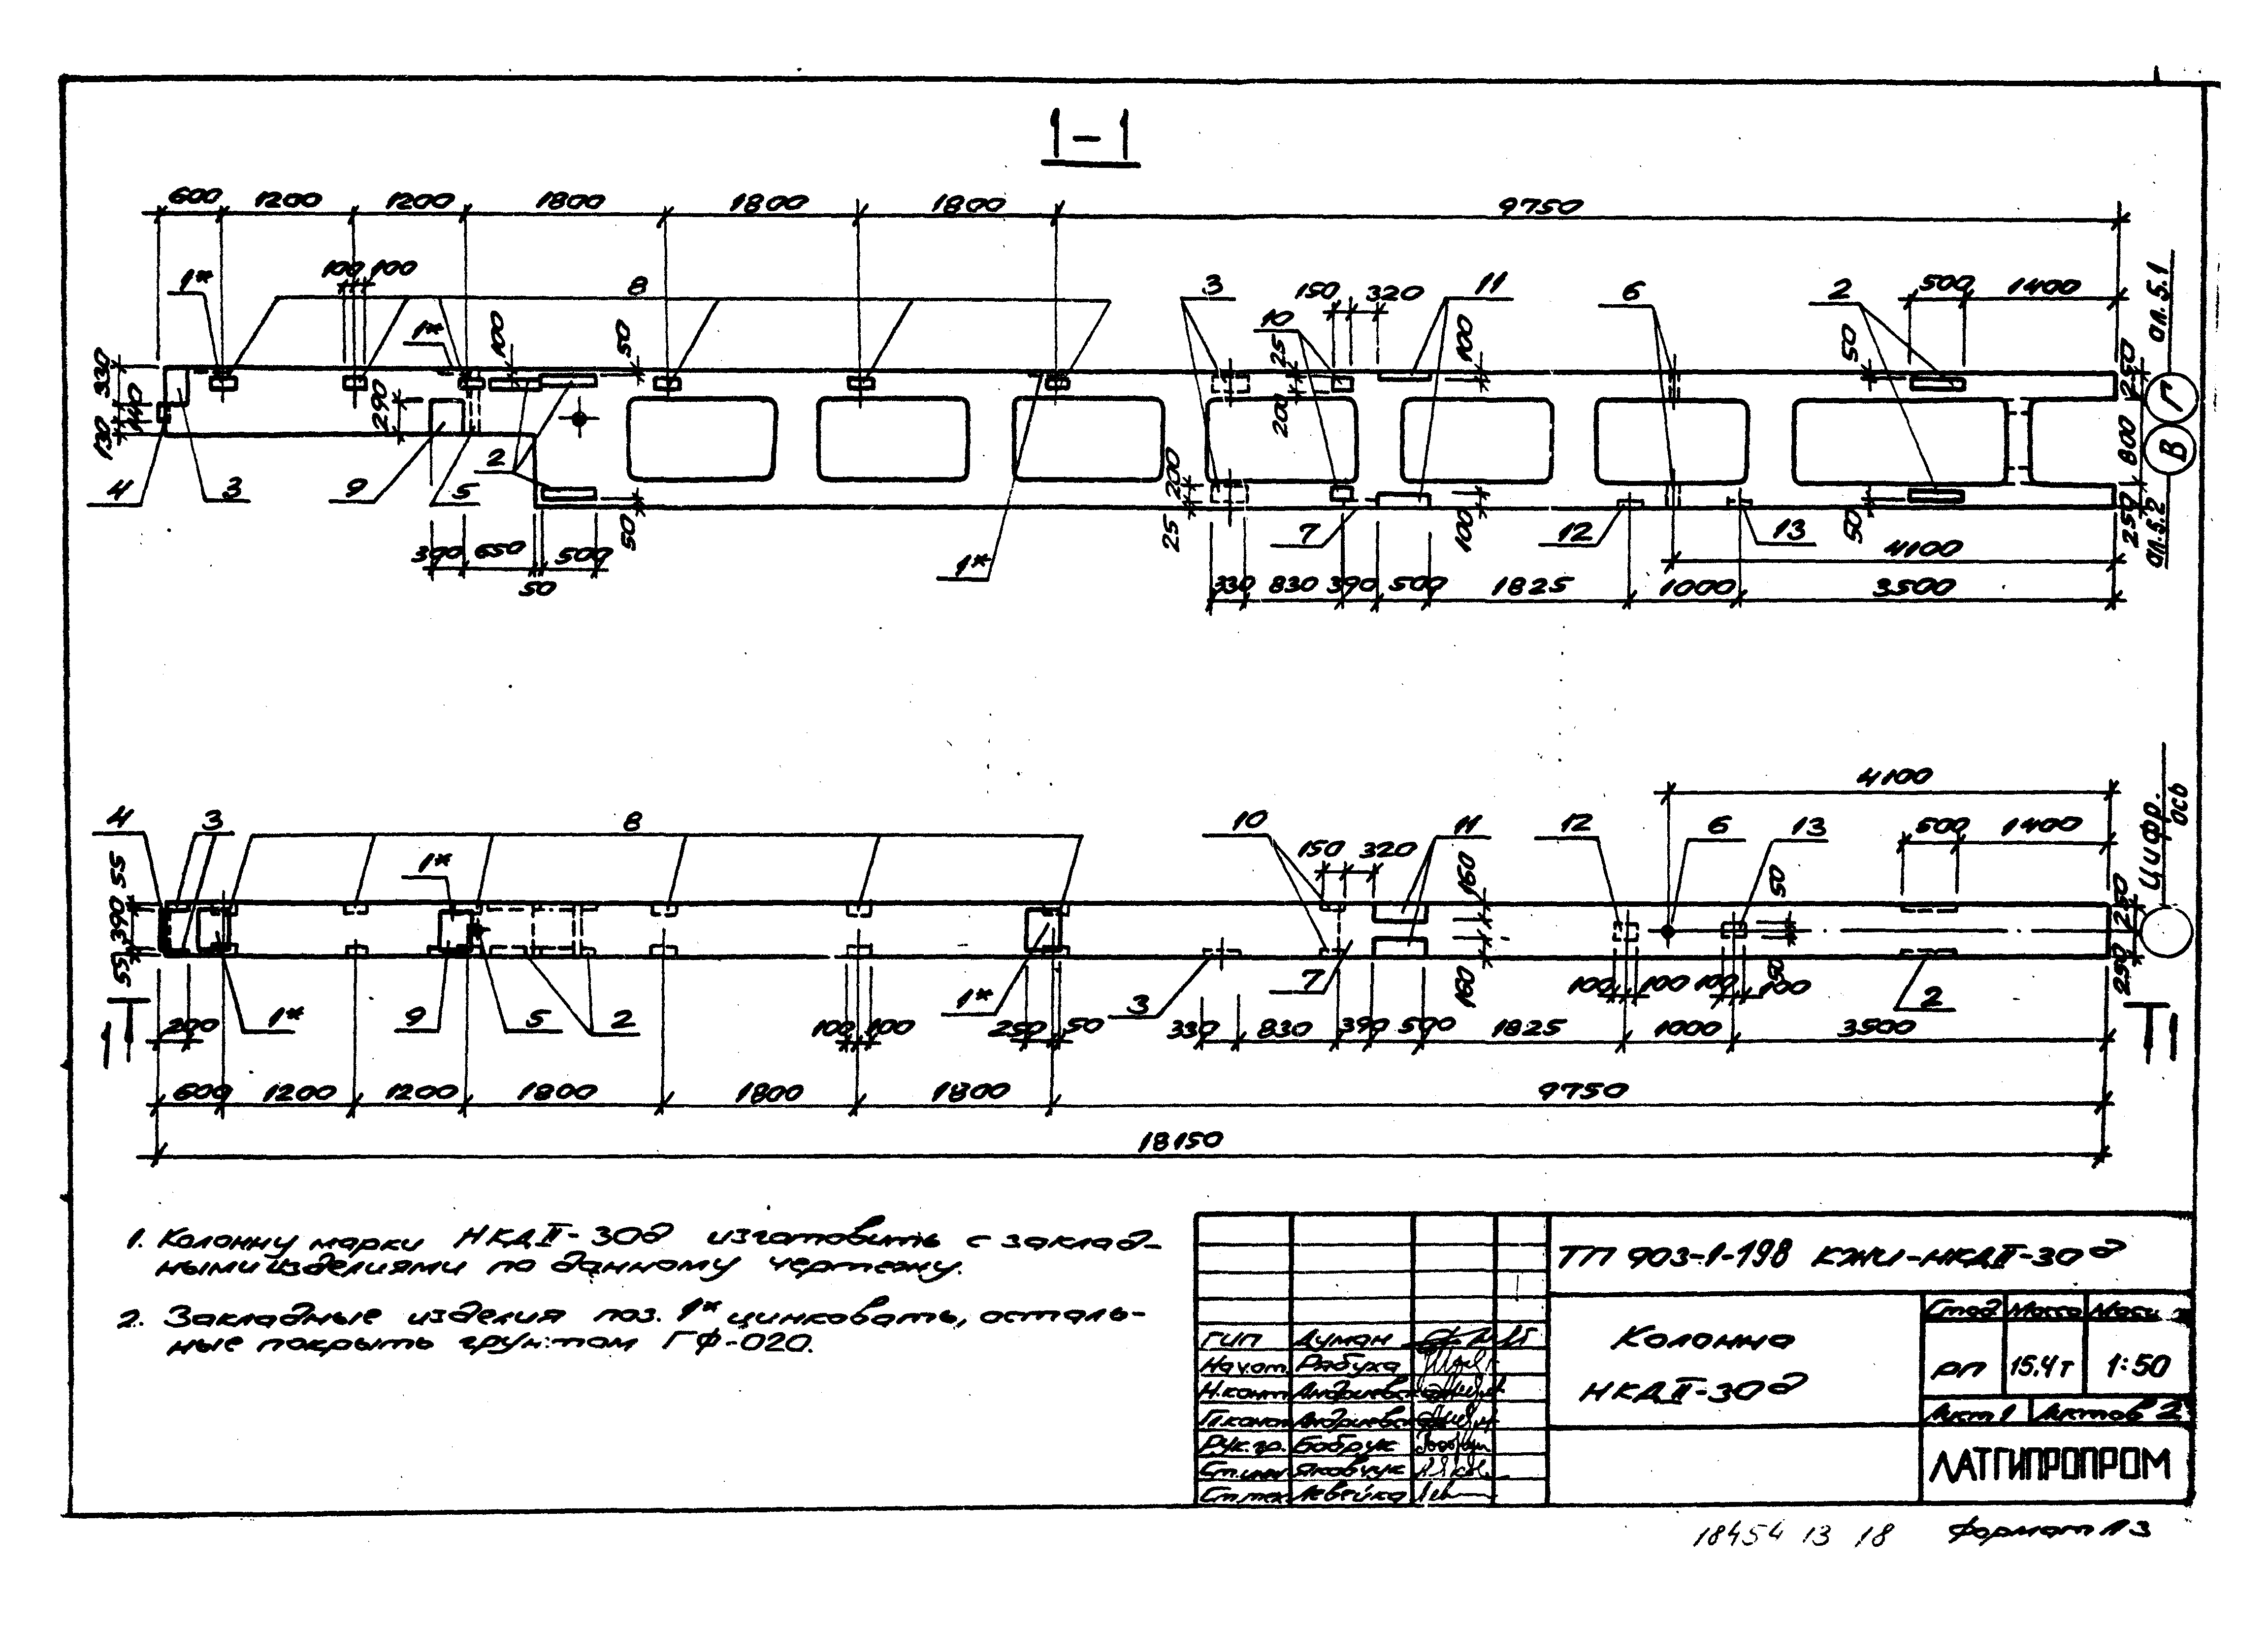 1-1
600 1200 1200 1800 1800 1800 9750
1* 100 100 8 3 150 320 11 6 2 500 1400 ал.5.1
1* 100 50 10 25 100 50 250
330 140 130 290 200 Г
800 В
4 3 9 5 2 200 25 50 7 100 12 13 50 250 ал.5.2
390 650 500 4100
50 1* 330 830 390 500 1825 1000 3500
4100
4 3 8 10 11 12 6 13 500 1400 Цифр. ось
1* 150 320 160 50 250
55 390 55
1* 9 5 2 1* 3 7 160 100 100 100 50 100 2 250
1 200 100 100 250 50 330 830 390 500 1825 1000 3500 1
600 1200 1200 1800 1800 1800 9750
18150
1. Колонну марки НКДII-30д изготовить с заклад-
ными изделиями по данному чертежу.
2. Закладные изделия поз. 1* цинковать, осталь-
ные покрыть грунтом ГФ-020.
ТП 903-1-198 КЖИ-НКДII-30д
Колонна
НКДII-30д
Стад. Масса Масш.
РП 15.4т 1:50
Лист 1 Листов 2
ЛАТГИПРОПРОМ
ГИП Думан
Нач.от. Рябуха
Н.конт. Андриевская
Гл.конст. Андриевская
Рук.гр. Бобрук
Ст.инж. Яковчук
Ст.тех. Левейка
18454 13 18 Формат А3